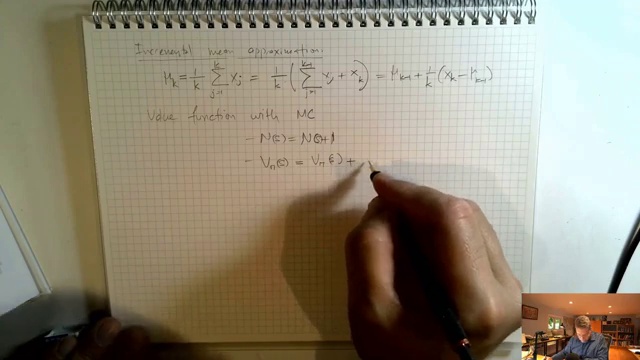 Incremental mean approximation:
μ_k = 1/k Σ_{j=1}^{k} x_j = 1/k ( Σ_{j=1}^{k-1} x_j + x_k ) = μ_{k-1} + 1/k ( x_k − μ_{k-1} )
Value function with MC
- N(s) = N(s)+1
- V_π(s) = V_π(s) +